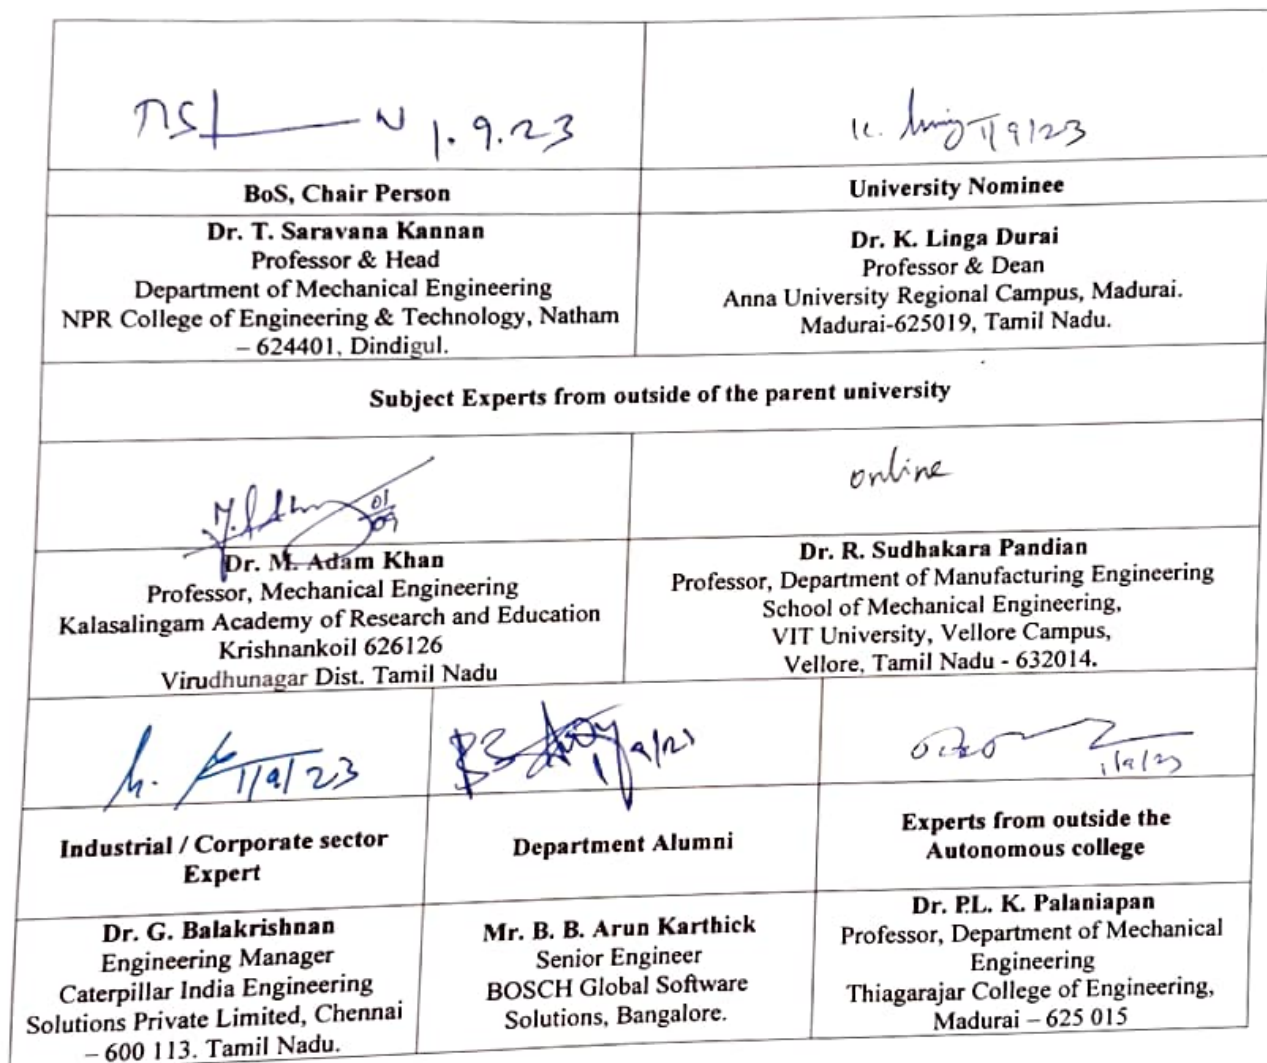 1.9.23
K. 1/9/23
BoS, Chair Person
University Nominee
Dr. T. Saravana Kannan
Professor & Head
Department of Mechanical Engineering
NPR College of Engineering & Technology, Natham
– 624401, Dindigul.
Dr. K. Linga Durai
Professor & Dean
Anna University Regional Campus, Madurai.
Madurai-625019, Tamil Nadu.
Subject Experts from outside of the parent university
01/09
online
Dr. M. Adam Khan
Professor, Mechanical Engineering
Kalasalingam Academy of Research and Education
Krishnankoil 626126
Virudhunagar Dist. Tamil Nadu
Dr. R. Sudhakara Pandian
Professor, Department of Manufacturing Engineering
School of Mechanical Engineering,
VIT University, Vellore Campus,
Vellore, Tamil Nadu - 632014.
1/9/23
1/9/23
1/9/23
Industrial / Corporate sector
Expert
Department Alumni
Experts from outside the
Autonomous college
Dr. G. Balakrishnan
Engineering Manager
Caterpillar India Engineering
Solutions Private Limited, Chennai
– 600 113. Tamil Nadu.
Mr. B. B. Arun Karthick
Senior Engineer
BOSCH Global Software
Solutions, Bangalore.
Dr. P.L. K. Palaniapan
Professor, Department of Mechanical
Engineering
Thiagarajar College of Engineering,
Madurai – 625 015